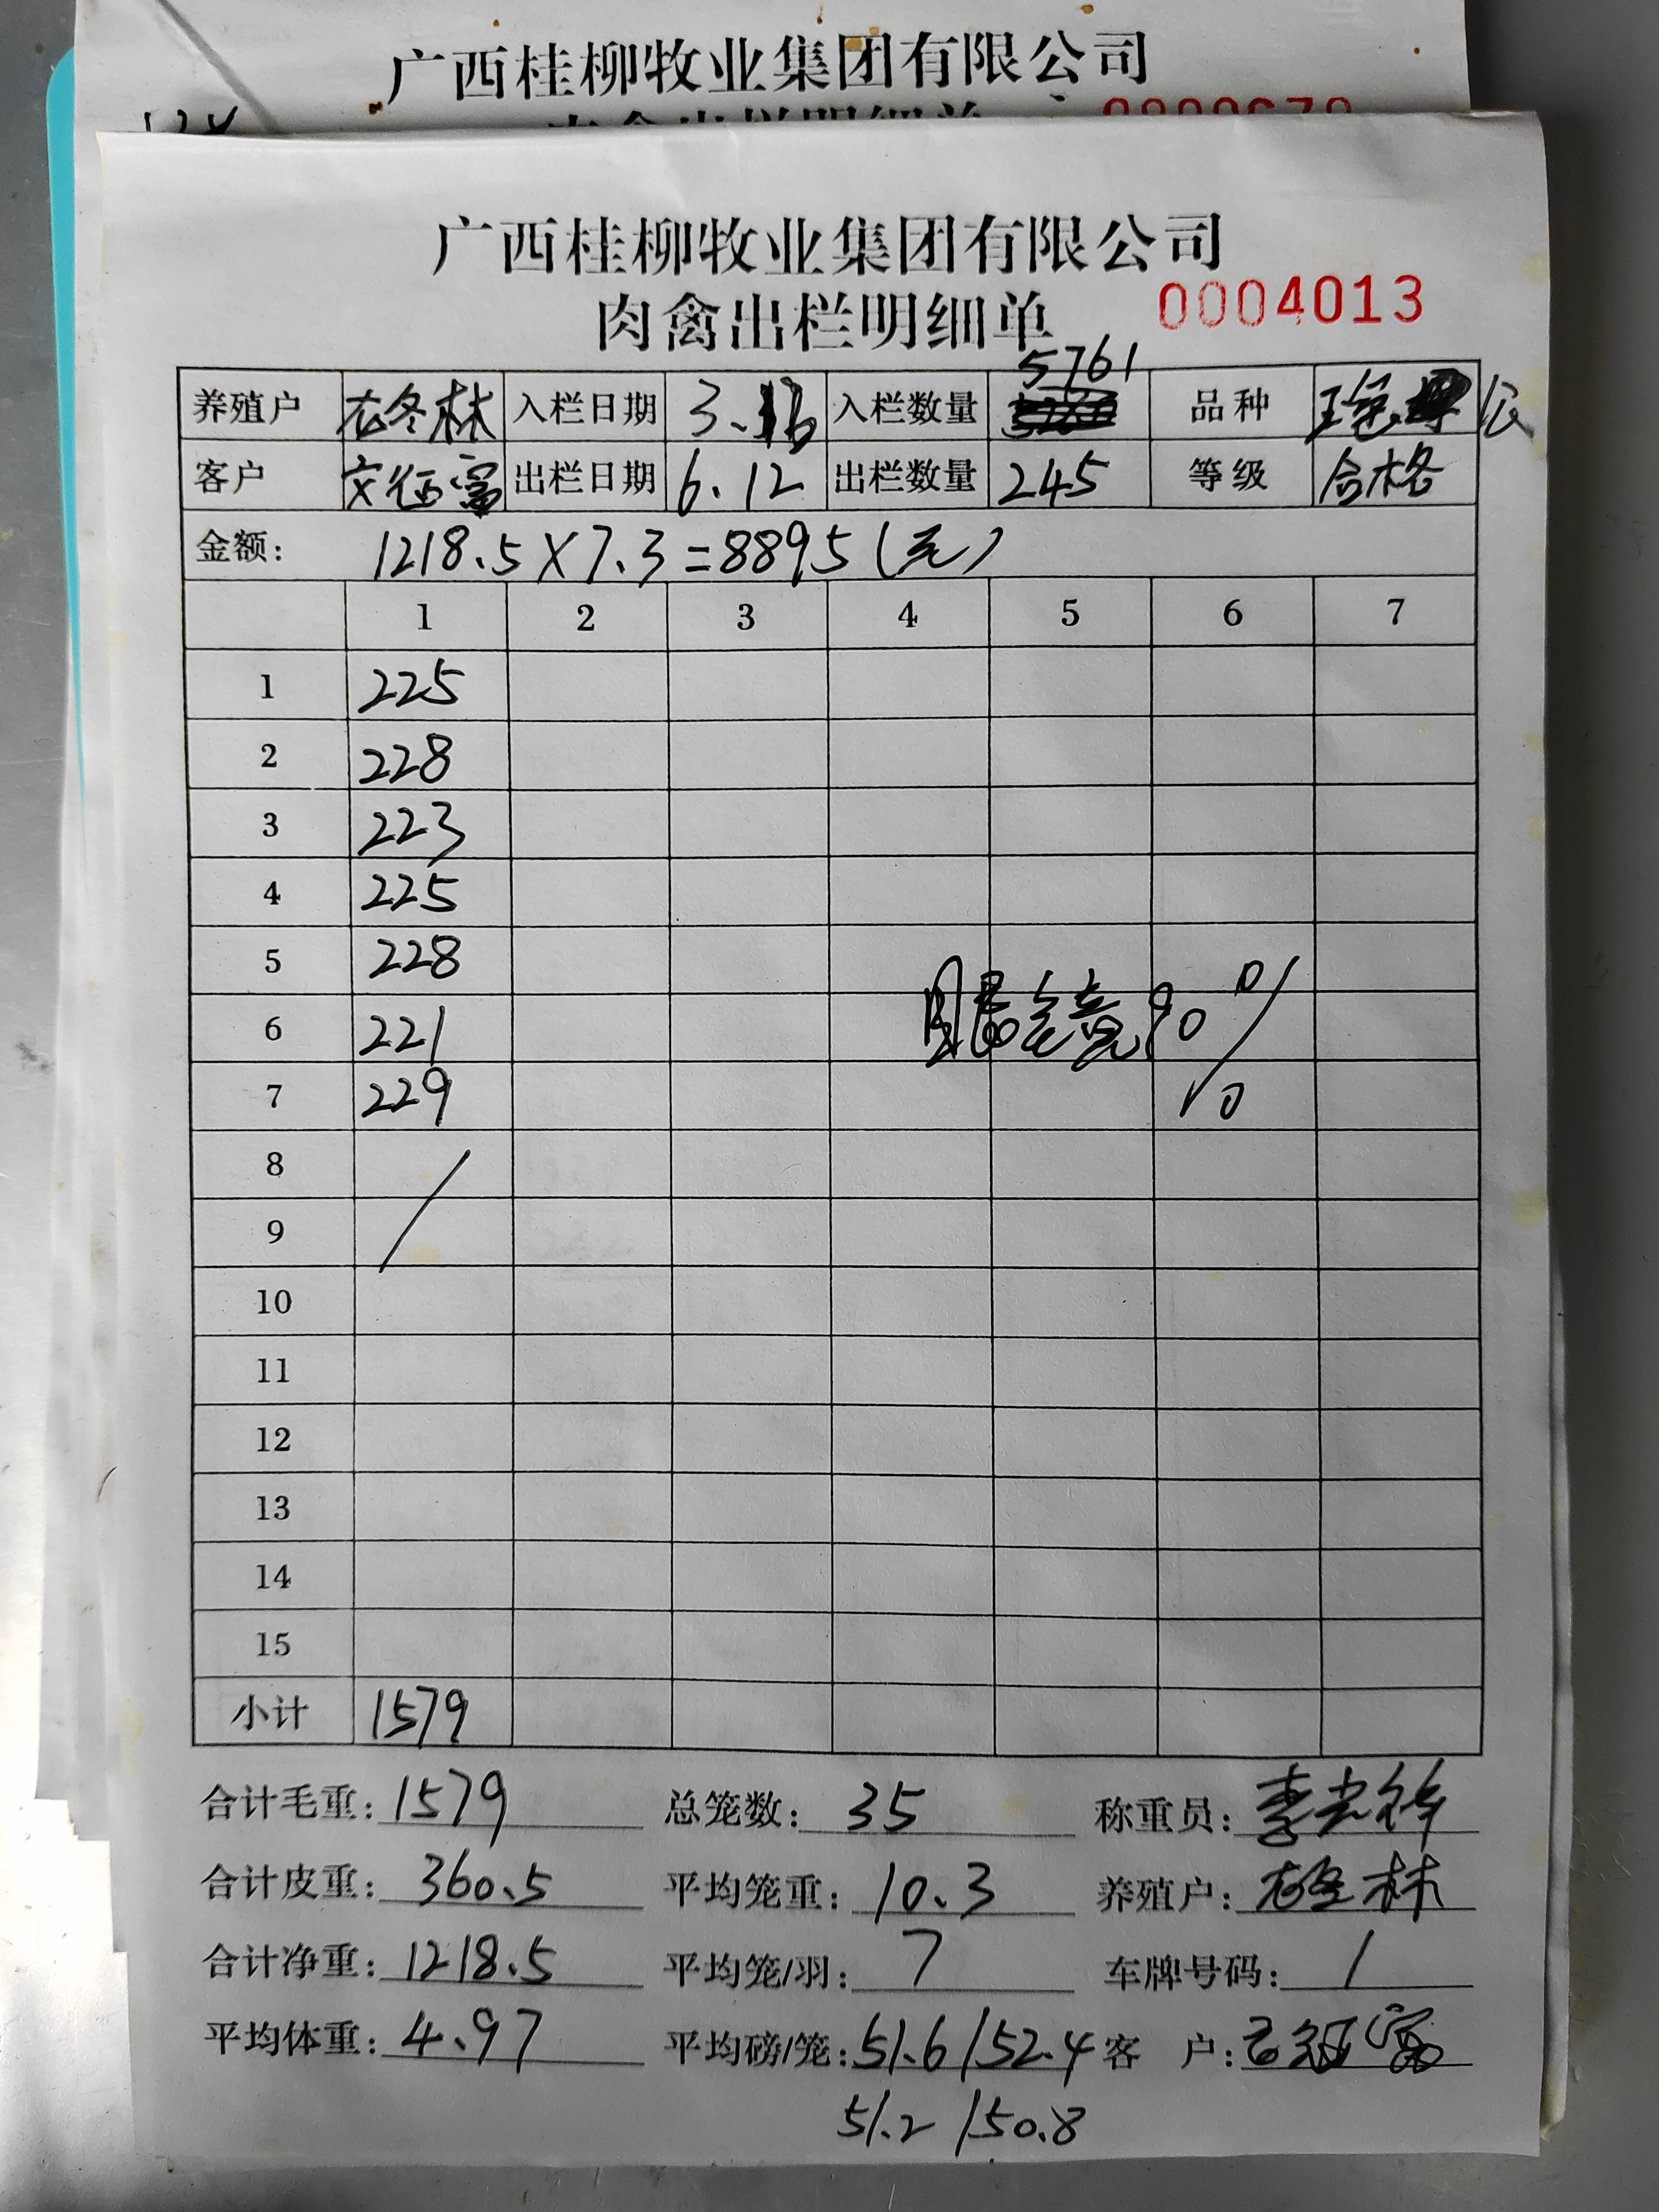 广西桂柳牧业集团有限公司
广西桂柳牧业集团有限公司
肉禽出栏明细单 0004013
5761
养殖户 冬林 入栏日期 3.16 入栏数量 品种 公
客户 富 出栏日期 6.12 出栏数量 245 等级 合格
金额: 1218.5×7.3=8895(元)
1 2 3 4 5 6 7
1 225
2 228
3 223
4 225
5 228
6 221
7 229
90%
8
9
10
11
12
13
14
15
小计 1579
合计毛重: 1579 总笼数: 35 称重员: 李
合计皮重: 360.5 平均笼重: 10.3 养殖户: 林
合计净重: 1218.5 平均笼/羽: 7 车牌号码: /
平均体重: 4.97 平均磅/笼: 51.6/52.4 客 户:
51.2/50.8